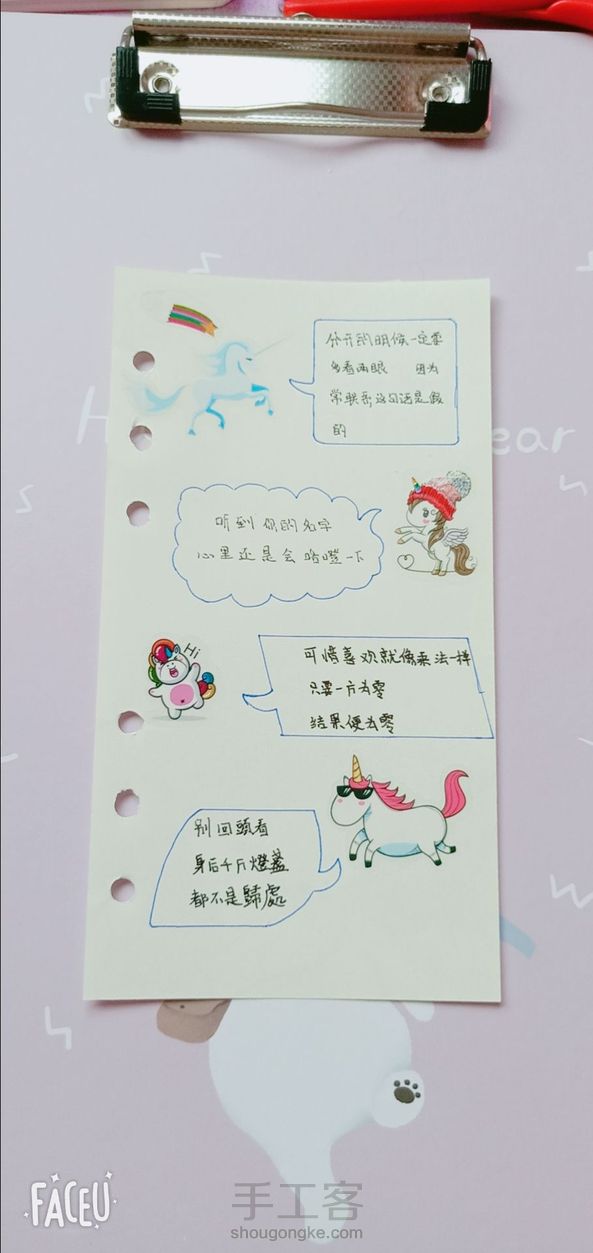 分开的时候一定要
多看两眼 因为
常联系这句话是假
的
听到你的名字
心里还是会咯噔一下
Hi
可惜喜欢就像乘法一样
只要一方为零
结果便为零
别回頭看
身后千斤燈盞
都不是歸處
H
ear
FACEU
手工客
shougongke.com